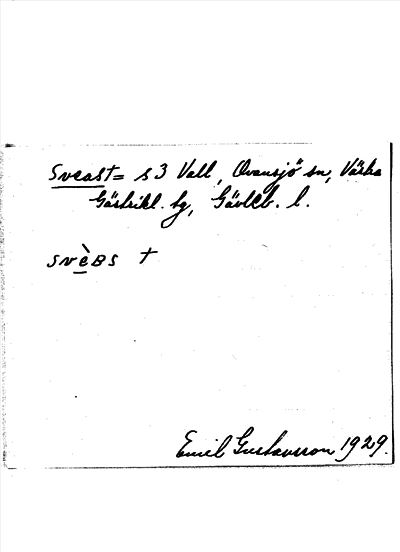 Sveast= s 3 Vall, Ovansjö sn, Västra
Gästrikl. tg, Gävleb. l.
svèBs +
Emil Gustavsson 1929.